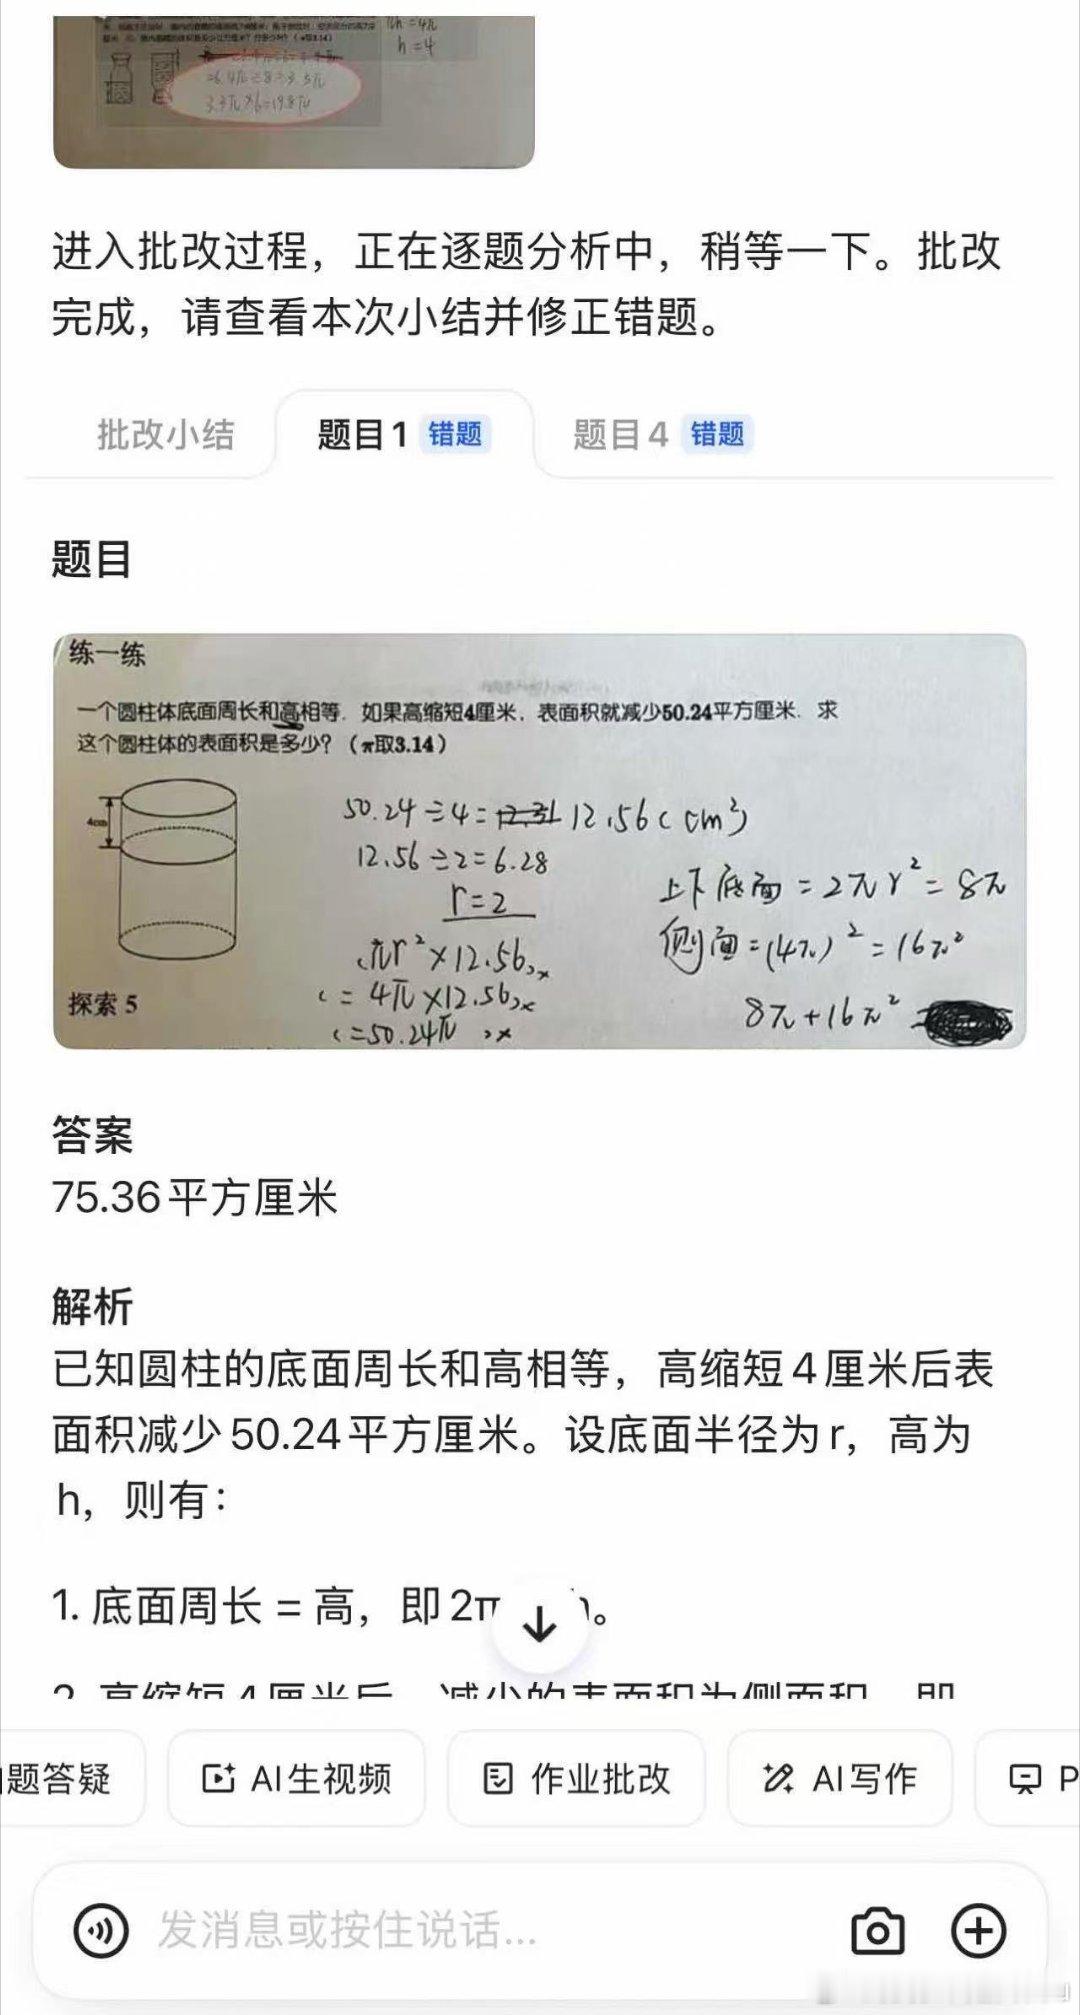 h=4
=6.4π÷8=3.3π
3.3π×6=19.8π
进入批改过程，正在逐题分析中，稍等一下。批改
完成，请查看本次小结并修正错题。
批改小结 题目1 错题 题目4 错题
题目
练一练
一个圆柱体底面周长和高相等．如果高缩短4厘米．表面积就减少50.24平方厘米．求
这个圆柱体的表面积是多少？（π取3.14）
4cm
50.24÷4=12.56(cm²)
12.56÷2=6.28
r=2
πr²×12.56
=4π×12.56
=50.24π
上下底面=2πr²=8π
侧面=(4π)²=16π²
8π+16π²
探索 5
答案
75.36平方厘米
解析
已知圆柱的底面周长和高相等，高缩短4厘米后表
面积减少50.24平方厘米。设底面半径为r，高为
h，则有：
1. 底面周长 = 高，即2π
2. 高缩短4厘米后，减少的表面积为侧面积，即
题答疑 AI生视频 作业批改 AI写作 P
发消息或按住说话...